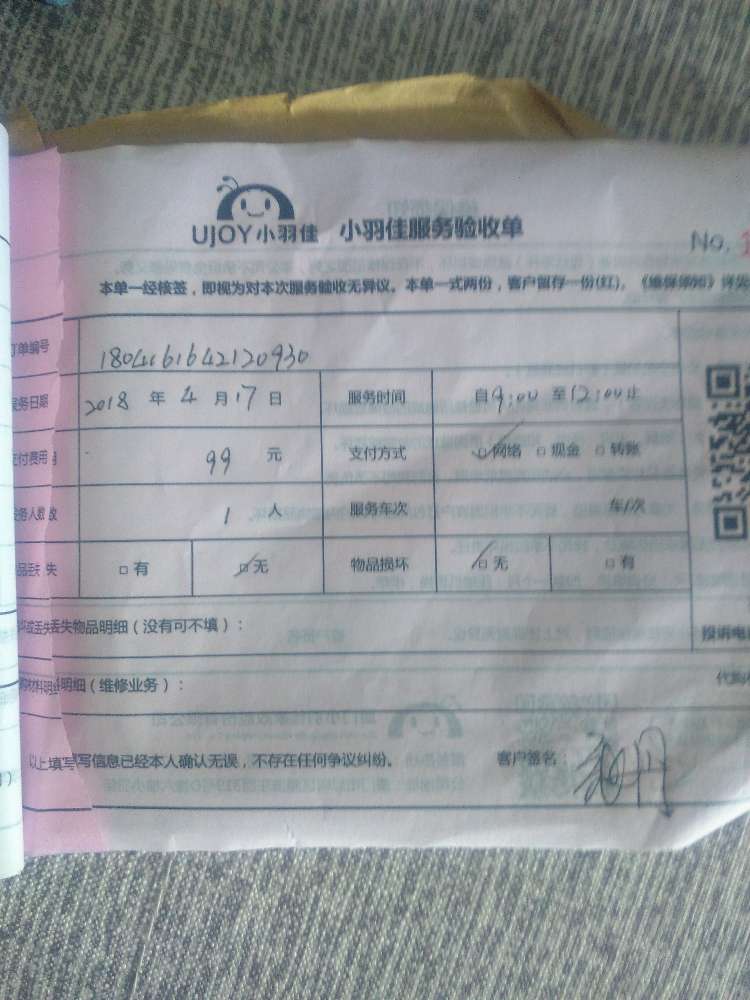 UJOY小羽佳 小羽佳服务验收单
No.
本单一经核签，即视为对本次服务验收无异议。本单一式两份，客户留存一份(红)，《维保须知》详见
订单编号 1804161642120930
服务日期 2018 年 4 月 17 日 服务时间 自9:00 至12:00止
支付费用 99 元 支付方式 ☑网络 □现金 □转账
服务人数 1 人 服务车次 车/次
物品丢失 □有 ☑无 物品损坏 ☑无 □有
丢失物品明细（没有可不填）：
投诉电
材料明细（维修业务）：
代购
以上填写信息已经本人确认无误，不存在任何争议纠纷。 客户签名：